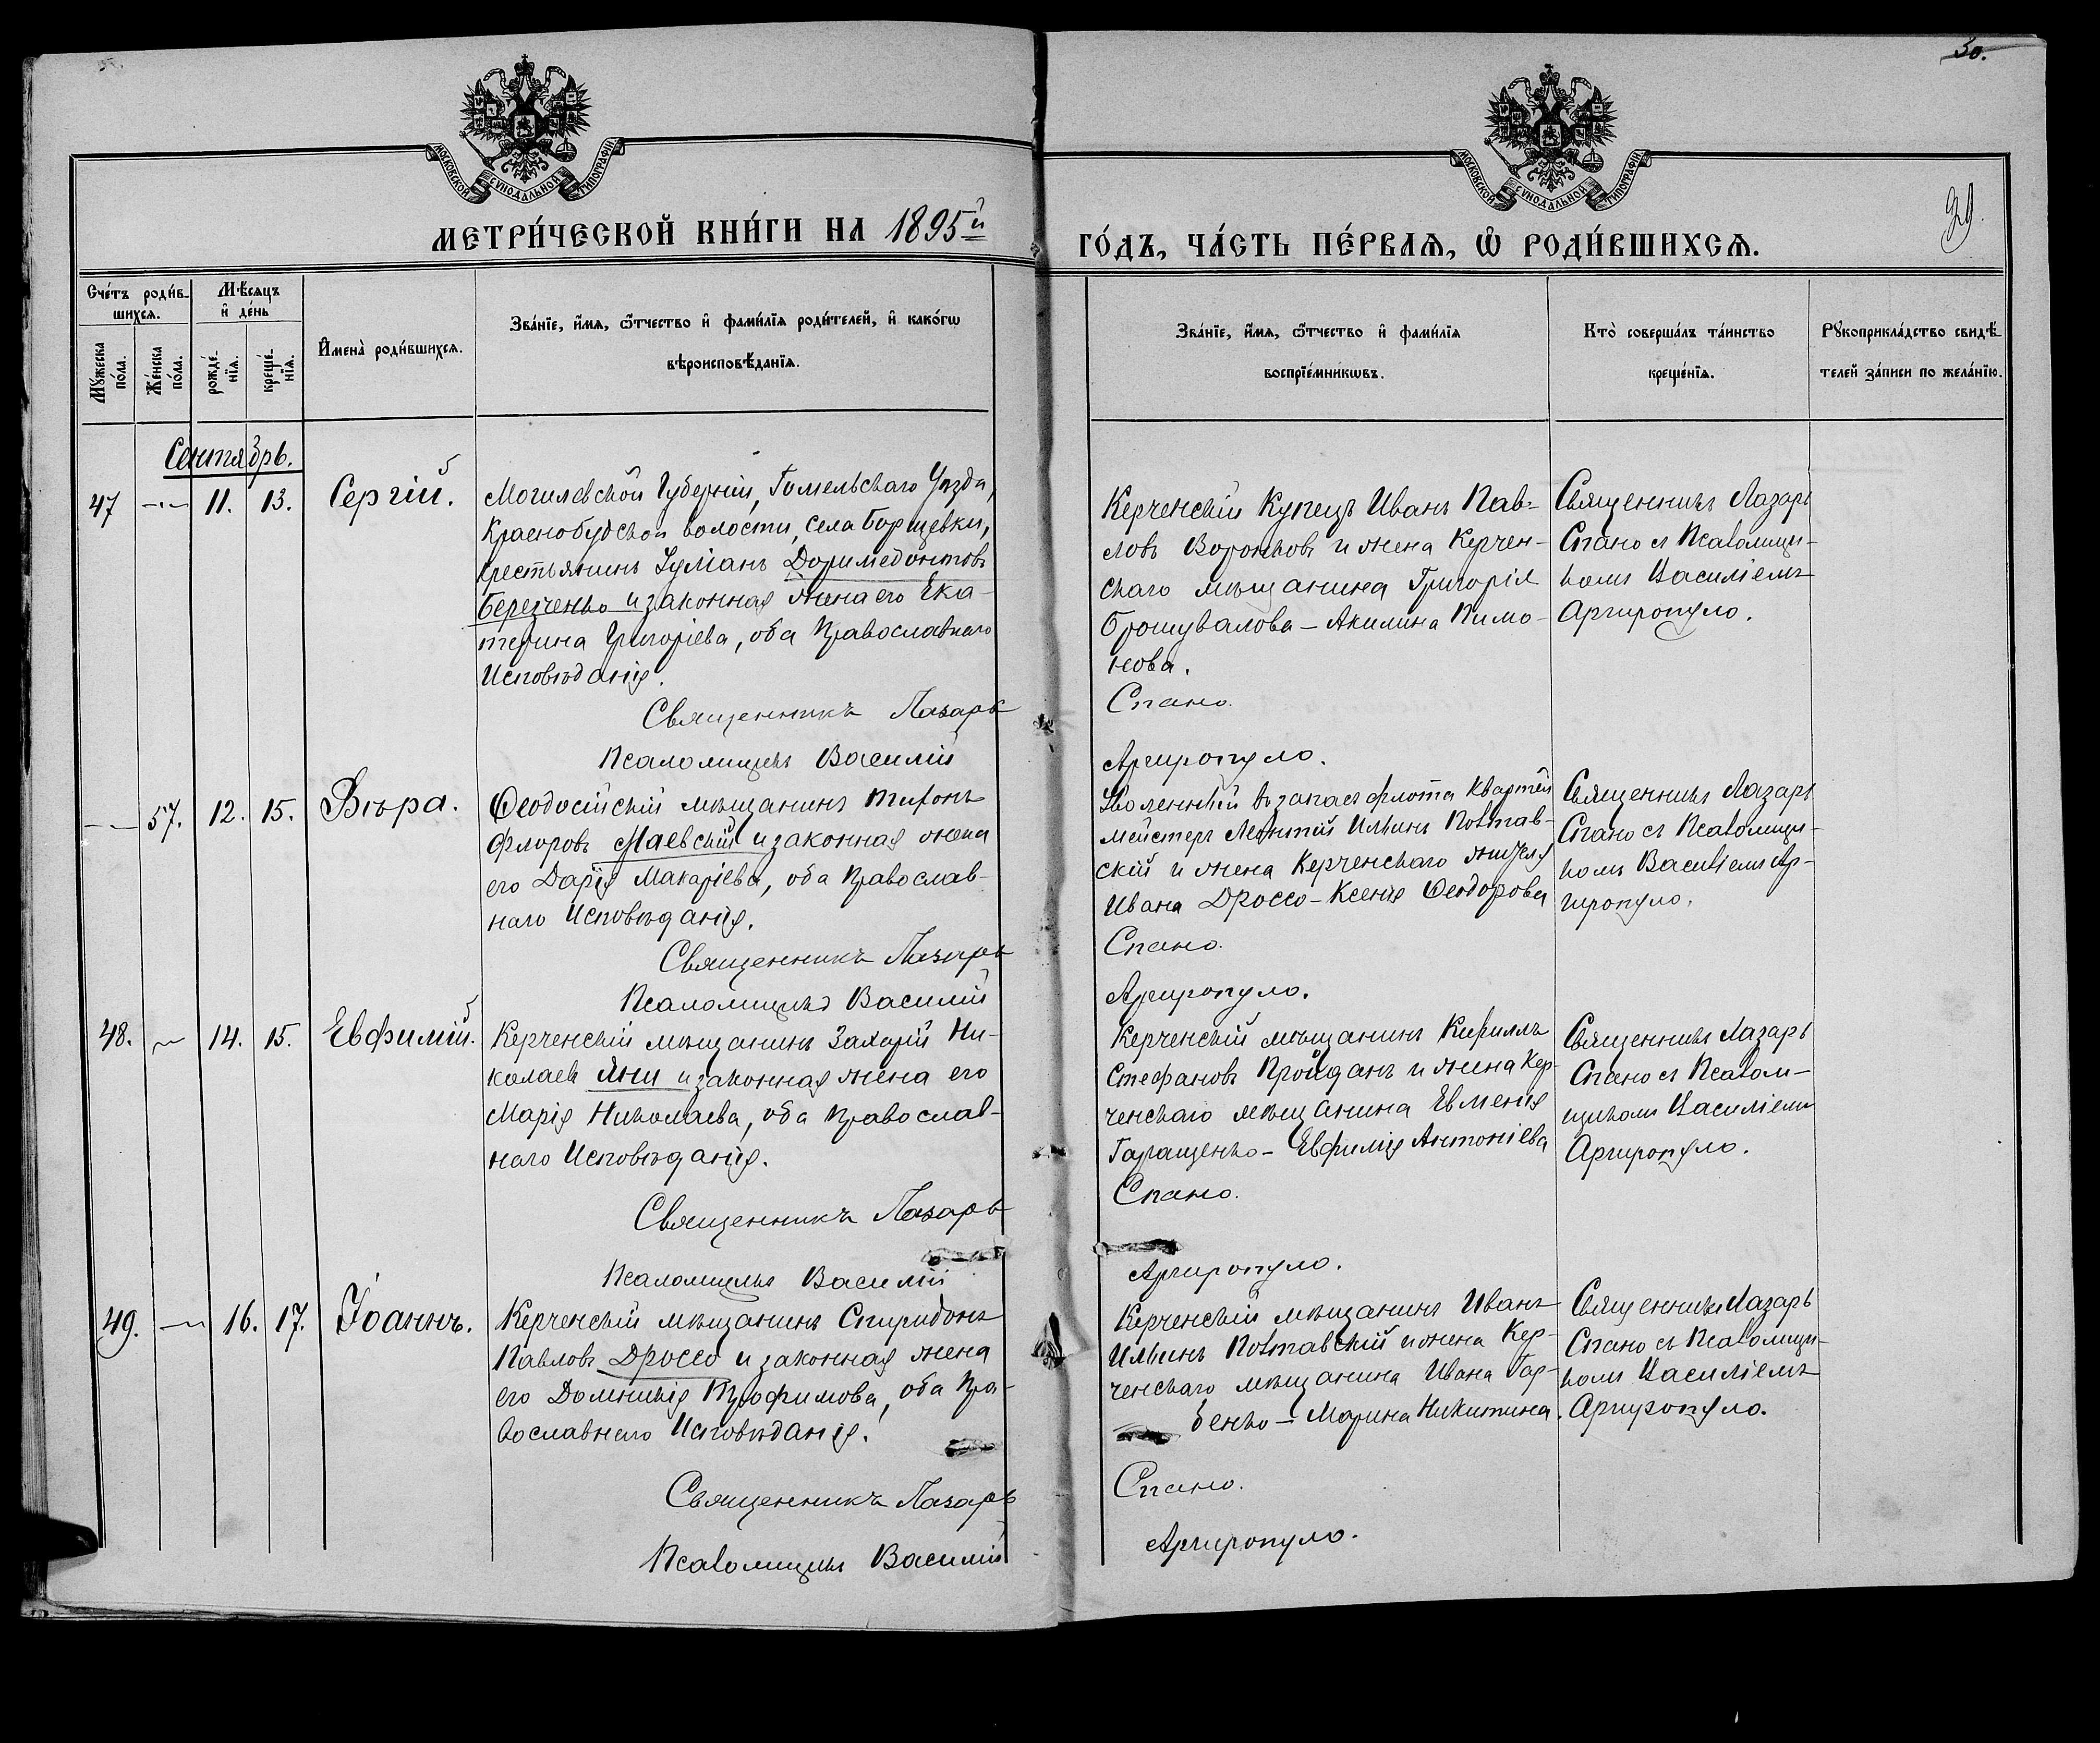 30.
29
МОСКОВСКОЙ СУНОДАЛЬНОЙ ТИПОГРАФІИ
МОСКОВСКОЙ СУНОДАЛЬНОЙ ТИПОГРАФІИ
МЕТРИ́ЧЕСКОЙ КНИ́ГИ НА 1895й
ГО́ДЪ, ЧА́СТЬ ПЕ́РВАѦ, Ѡ҆ РОДИ́ВШИХСѦ.
Сче́тъ роди́в-
шихсѧ.
Мꙋ́жеска по́ла.
Же́нска по́ла.
Мѣ́сѧцъ
и҆ де́нь
рожде́-нїѧ.
креще́-нїѧ.
И҆мена̀ роди́вшихсѧ.
Зва́нїе, и҆́мѧ, ѻ҆́тчество и҆ фами́лїѧ роди́телей, и҆ како́гѡ
вѣроисповѣ́данїѧ.
Зва́нїе, и҆́мѧ, ѻ҆́тчество и҆ фами́лїѧ
воспрїе́мникѡвъ.
Кто̀ соверша́лъ та́инство
креще́нїѧ.
Рꙋкоприкла́дство свидѣ́-
телей за́писи по жела́нїю.
Сентябрь.
47 — 11. 13. Сергій.
Могилевской Губерніи, Гомельскаго Уѣзда,
Краснобудской волости, села Борщевки,
крестьянинъ Іуліанъ Доримедонтовъ
Березченко и законная жена его Ека-
терина Григоріева, оба Православнаго
Исповѣданія.
Священникъ Лазарь
Псаломщикъ Василій
Керченскій Купецъ Иванъ Пав-
ловъ Воронковъ и жена Керчен-
скаго мѣщанина Григорія
Брошувалова – Акилина Пимо-
нова.
Спано.
Аргиропуло.
Священникъ Лазарь
Спано съ Псаломщи-
комъ Василіемъ
Аргиропуло.
— 57. 12. 15. Вѣра.
Ѳеодосійскій мѣщанинъ Тифонъ
Флоровъ Маевскій и законная жена
его Дарія Макаріева, оба Православ-
наго Исповѣданія.
Священникъ Лазарь
Псаломщикъ Василій
Уволенный въ запасъ флота Квартей
мейстеръ Леонтій Ильинъ Полтав-
скій и жена Керченскаго жителя
Ивана Дроссо – Ксенія Ѳеодорова
Спано.
Аргиропуло.
Священникъ Лазарь
Спано съ Псаломщи-
комъ Василіемъ Ар-
гиропуло.
48. — 14. 15. Евфимій.
Керченскій мѣщанинъ Захарій Ни-
колаевъ Яни и законная жена его
Марія Николаева, оба Православ-
наго Исповѣданія.
Священникъ Лазарь
Псаломщикъ Василій
Керченскій мѣщанинъ Кириллъ
Стефановъ Пройданъ и жена Кер-
ченскаго мѣщанина Евменія
Гаращенко – Евфимія Антоніева
Спано.
Аргиропуло.
Священникъ Лазарь
Спано съ Псалом-
щикомъ Василіемъ
Аргиропуло.
49. — 16. 17. Іоаннъ.
Керченскій мѣщанинъ Спиридонъ
Павловъ Дроссо и законная жена
его Домникія Трофимова, оба Пра-
вославнаго Исповѣданія.
Священникъ Лазарь
Псаломщикъ Василій
Керченскій мѣщанинъ Иванъ
Ильинъ Полтавскій и жена Кер-
ченскаго мѣщанина Ивана Гар-
бенко – Марина Никитина.
Спано.
Аргиропуло.
Священникъ Лазарь
Спано съ Псаломщи-
комъ Василіемъ
Аргиропуло.